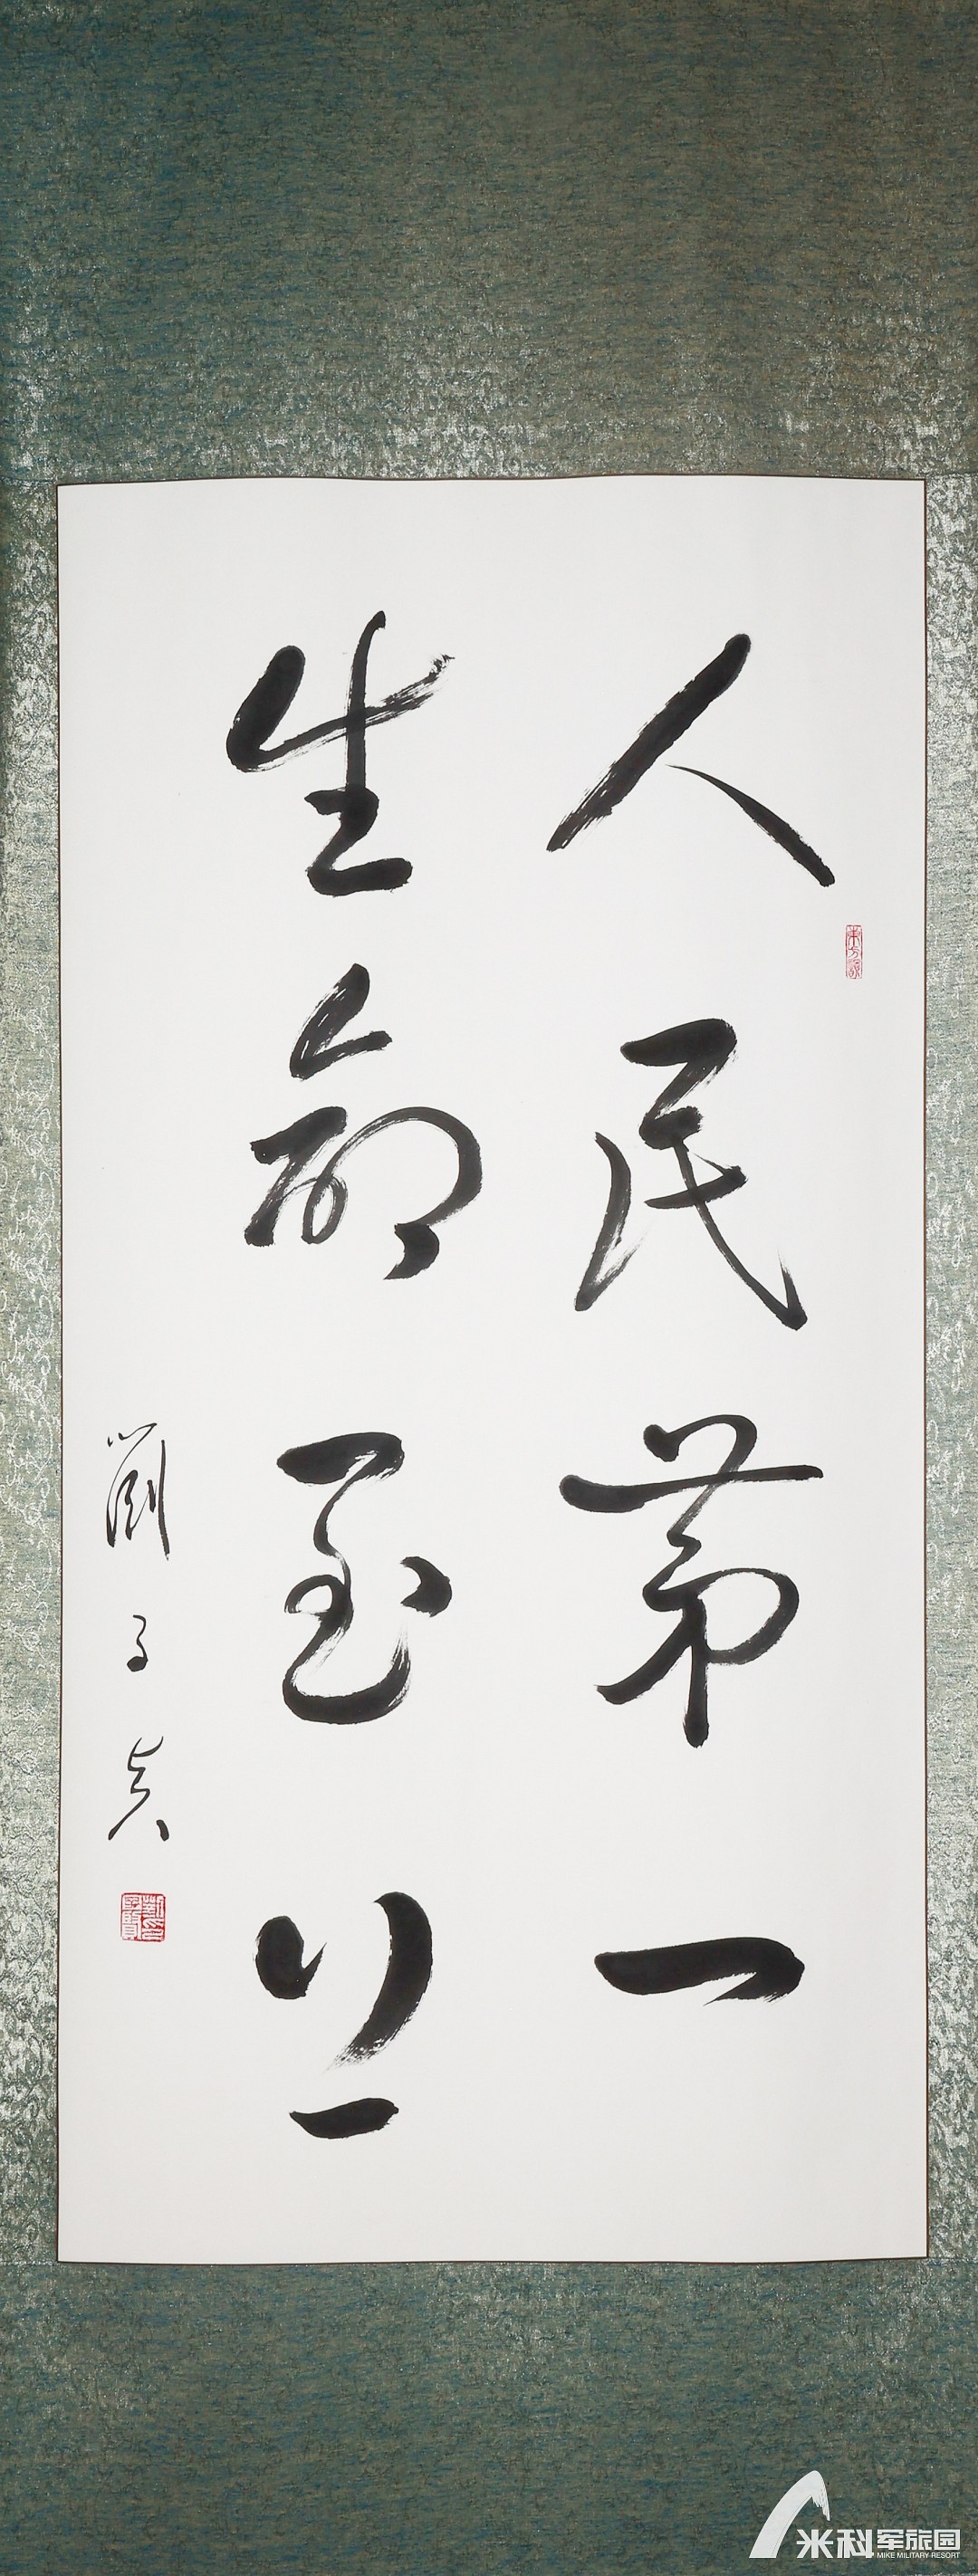 人民第一
生命至上
米科军旅园
MIKE MILITARY-RESORT